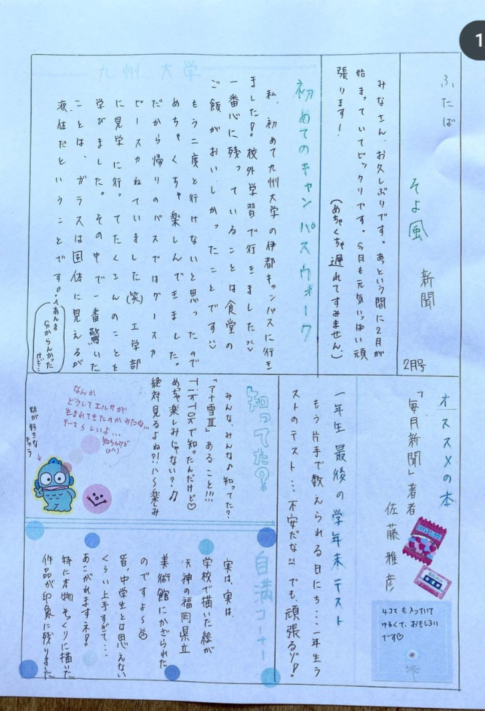 1
九州大学
ふたば
そよ風
新聞
2月号
みなさん、お久しぶりです。あっという間に2月が
始まっていてビックリです。今月も元気いっぱい頑
張ります！
(めちゃくちゃ遅れてすみません)
初めてのキャンパスウォーク
私、初めて九州大学の伊都キャンパスに行き
ました！校外学習で行きました
一番心に残っていることは食堂の
ご飯がおいしかったことです
もう二度と行けないと思ったので
めちゃくちゃ楽しんできました。
だから帰りのバスではグースカ
ピースカねていました(笑)工学部
に見学に行ってたくさんのことを
学びました。その中で一番驚いた
ことは、ガラスは固体に見えるが
液体だということです。
あんま
分からんかった
けど…
オススメの本
「毎月新聞」著者
佐藤雅彦
4コマも入っていて
けるくて、おもしろい
です
一年生最後の学年末テスト
もう片手で数えられる日にち…一年生ラ
ストのテスト…不安だな でも、頑張るゾ！
知ってた？
みんな、みんな♪知ってた？
「アナ雪Ⅲ」あること!!!
めちゃ楽しみじゃない？♫
絶対見るよね？！い〜楽しみ
なんか
どうしてエルサが
生まれてきたのかみたいな…
たてらしいよ…
自満コーナー
実は、実は、
学校で描いた絵が
天神の福岡県立
美術館にかざられた
のですよ〜
皆、中学生とは思えない
くらい上手すぎて…
あこがれますネ！
特に本物そっくりに描いた
作品が印象に残りました